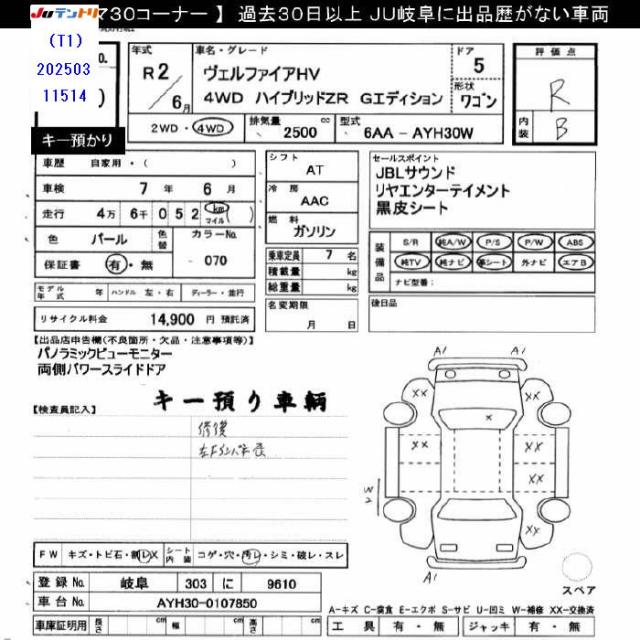 JUテントリ
マ30コーナー 】 過去30日以上 JU岐阜に出品歴がない車両
(T1)
202503
11514
キー預かり
年式
R2/6月
車名・グレード
ヴェルファイアHV
4WD ハイブリッドZR Gエディション
ドア
5
形状
ワゴン
2WD・4WD
排気量
2500 cc
型式
6AA - AYH30W
評価点
R
内装
B
車歴 自家用・( )
車検 7年 6月
走行 4万 6千 0 5 2 km マイル ( )
色 パール
色替
カラーNo.
070
保証書 有・無
シフト
AT
冷房
AAC
燃料
ガソリン
乗車定員 7 名
積載量 kg
総重量 kg
名変期限
月 日
セールスポイント
JBLサウンド
リヤエンターテイメント
黒皮シート
装備品
S/R 純A/W P/S P/W ABS
純TV 純ナビ 革シート 外ナビ エアB
ナビ型番:
後日品
モデル年式 年 ハンドル 左・右 ディーラー・並行
リサイクル料金 14,900 円 預託済
【出品店申告欄(不良箇所・欠品・注意事項等)】
パノラミックビューモニター
両側パワースライドドア
キー預り車輌
【検査員記入】
修復
A1
A1
XX
XX
XX
XX
XX
X
W2
A1
スペア
FW キズ・トビ石・割レX
シート内装
コゲ・穴・汚レ・シミ・破レ・スレ
登録No. 岐阜 303 に 9610
車台No. AYH30-0107850
車庫証明用 長さ cm 幅 cm 高さ cm
A-キズ C-腐食 E-エクボ S-サビ U-凹ミ W-補修 XX-交換済
工具 有・無 ジャッキ 有・無